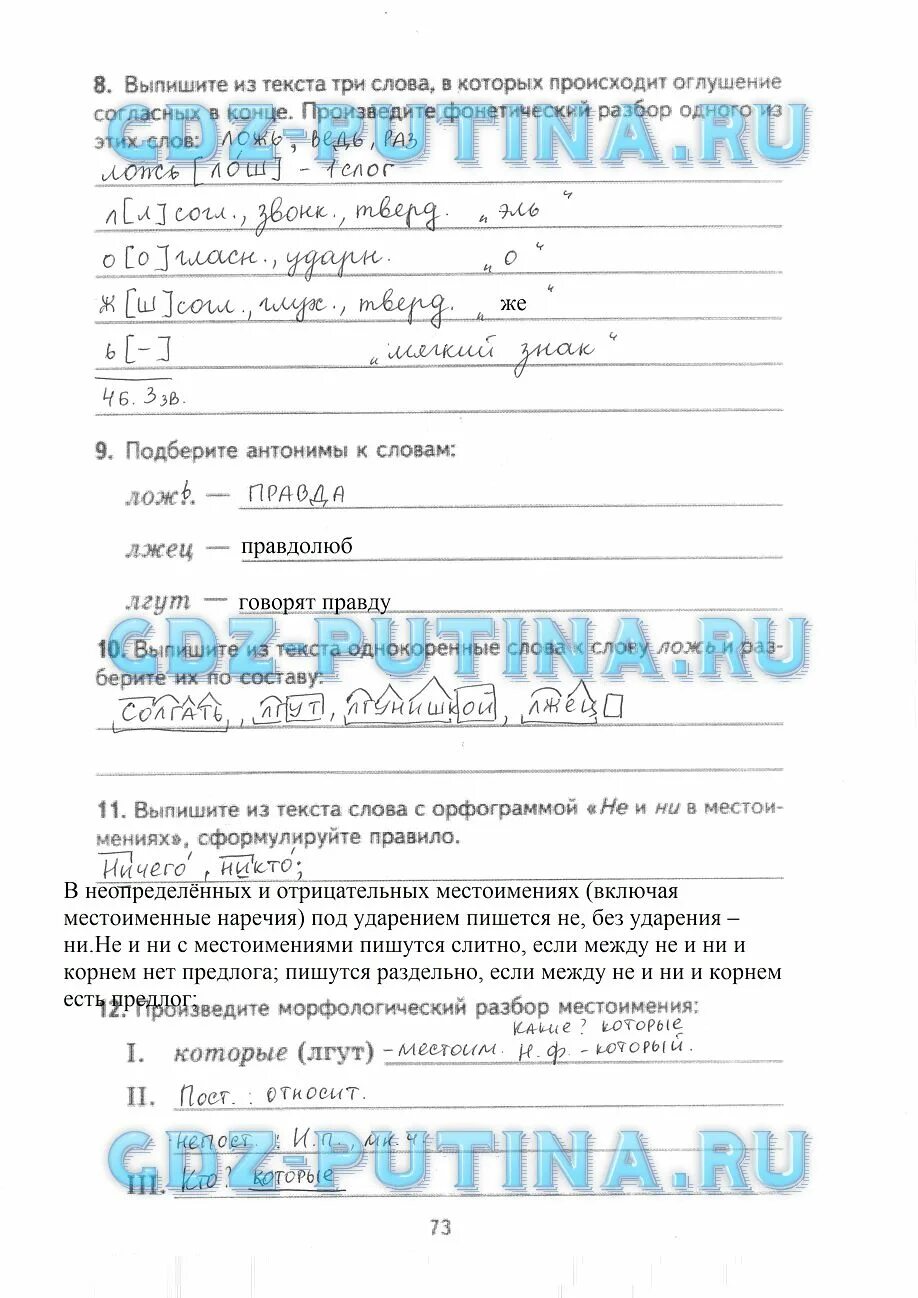 8. Выпишите из текста три слова, в которых происходит оглушение
согласных в конце. Произведите фонетический разбор одного из
этих слов: ложь, ведь, раз
GDZ-PUTINA.RU
ложь [ло́ш] - 1 слог
л [л] согл., звонк., тверд. „эль“
о [о] гласн., ударн. „о“
ж [ш] согл., глух., тверд. „же“
ь [-] „мягкий знак“
4б. 3зв.
9. Подберите антонимы к словам:
ложь — ПРАВДА
лжец — правдолюб
лгут — говорят правду
GDZ-PUTINA.RU
10. Выпишите из текста однокоренные слова к слову ложь и раз-
берите их по составу:
СОЛГАТЬ, ЛГУТ, ЛГУНИШКОЙ, ЛЖЕЦ
11. Выпишите из текста слова с орфограммой «Не и ни в местои-
мениях», сформулируйте правило.
Ничего́, никто́;
В неопределённых и отрицательных местоимениях (включая
местоименные наречия) под ударением пишется не, без ударения –
ни.Не и ни с местоимениями пишутся слитно, если между не и ни и
корнем нет предлога; пишутся раздельно, если между не и ни и корнем
есть предлог;
12. Произведите морфологический разбор местоимения:
КАКИЕ? КОТОРЫЕ
I. которые (лгут) - местоим. Н.ф. - который.
II. Пост.: относит.
непост.: И.п., мн.ч.
GDZ-PUTINA.RU
III. Кто? которые
73